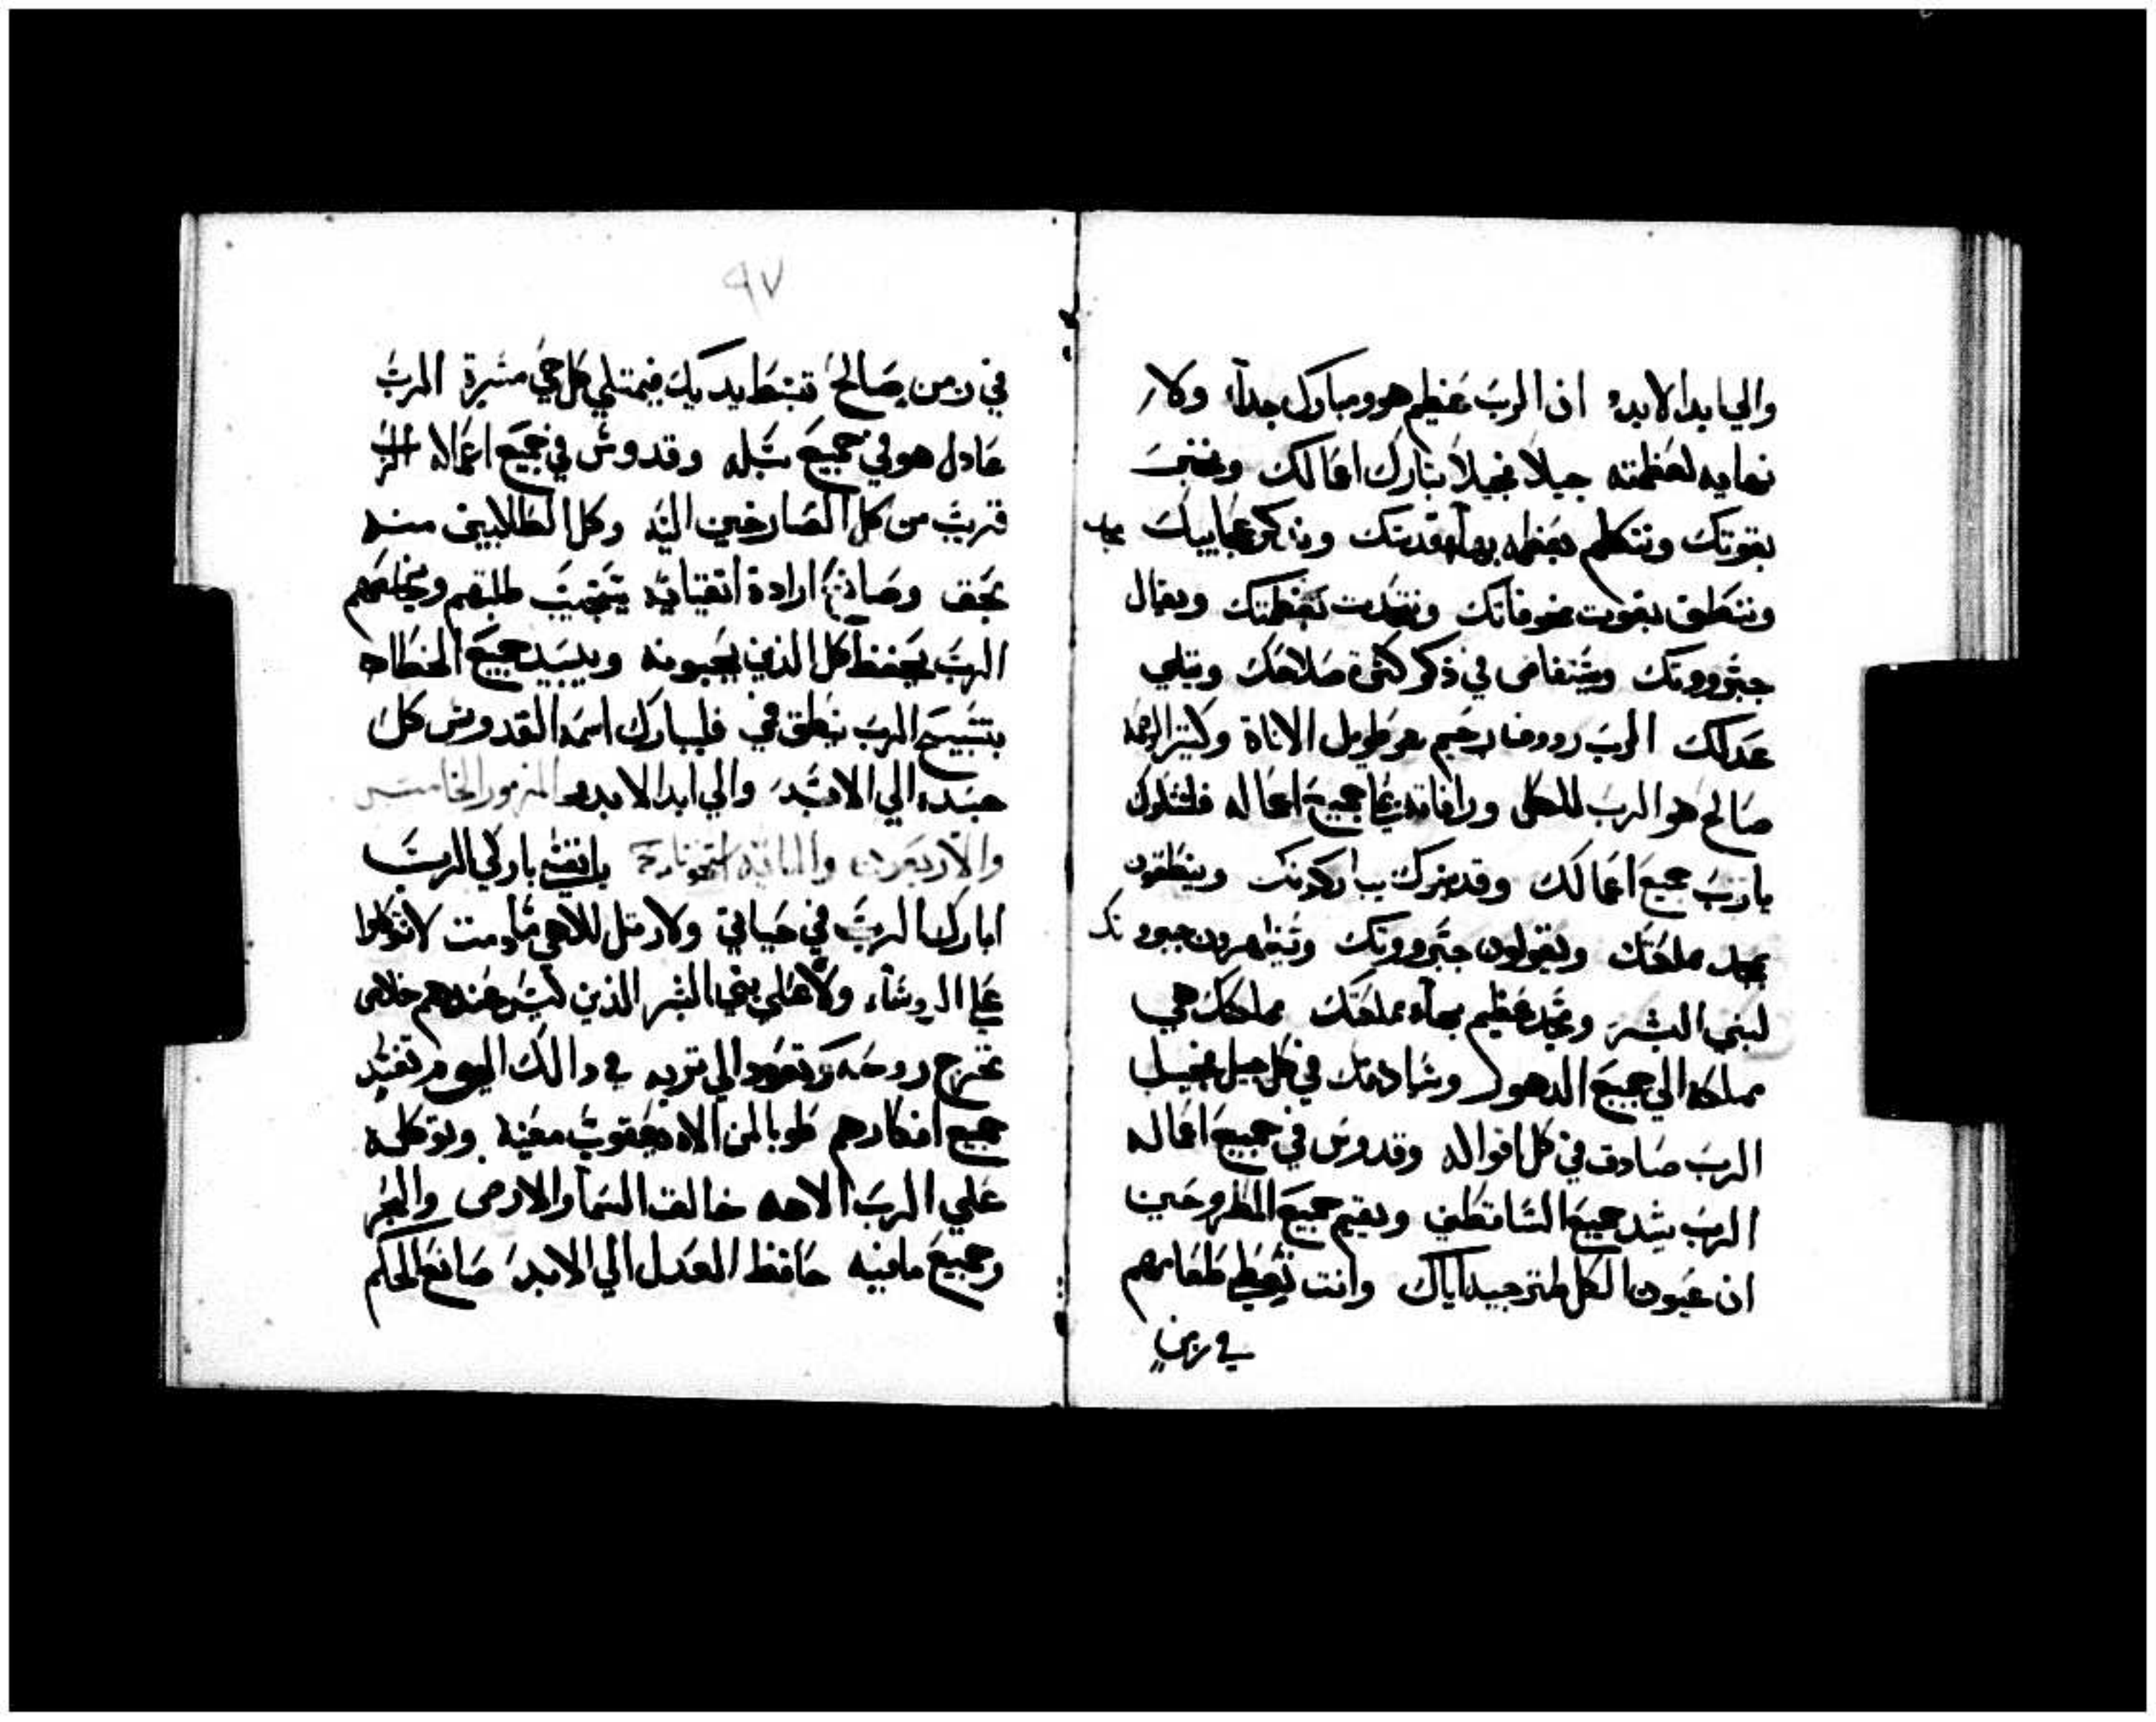 والي ابد الابد ان الرب عظيم هو ومبارك جداً ولا
نهايه لعظمته جيلاً فجيلاً تبارك اعمالك وتخبر
بقوتك وتتكلم بعظمه بهاء قدسك وتذكر عجاييبك
وتنطق بقوت مخوفاتك وتتحدت بعظمتك ويقال
جبرووتك وتتفاضى في ذكر كثرة صلاحك وتبلي
عدلك الرب رووف رحيم هو طويل الاناة وكتير الرحمه
صالح هو الرب للكل ورافاته علي جميع اعماله فلتشكرك
يا رب جميع اعمالك وقديسوك يباركونك وينطقون
بمجد مملكتك ويقولون جبرووتك وتيظهرون جبرو تك
لبني البشر ومجد عظيم بهاء مملكتك مملكتك هي
مملكه الي جميع الدهور وسيادتك في كل جيل فجيل
الرب صادق في كل اقواله وقدوس في جميع اعماله
الرب يشدد جميع الساقطين ويقيم جميع المطروحين
ان عيون الكل تترجيد اياك وانت تعطي طعامهم
في زمن
٩٧
في زمن صالح تبسط يديك فيمتلي كل حي مسرة الرب
عادل هو في جميع سبله وقدوس في جميع اعماله الرب
قريب من كل الصارخين اليه وكل الطالبين منه
بحق وصانع ارادة اتقيائه يستجيب طلبتهم ويخلصهم
الرب يحفظ كل الذين يحبونه ويبيد جميع الخطاه
بتسبيح الرب ينطق في فليبارك اسمه القدوس كل
جسده الي الابد والي ابد الابد المزمور الخامس
والاربعون والمايه يا نفسي باركي الرب
ابارك الرب في حياتي ولارتل للاهي ما دمت لا تتوكلوا
علي الروساء ولا علي بني البشر الذين ليس عندهم خلاص
تخرج روحه وتعود الي تربه في دالك اليوم تفسد
جميع افكارهم طوبا لمن الاه يعقوب معينه وتوكله
علي الرب الاهه خالق السما والارض والبحر
وجميع مافيه حافظ العدل الي الابد صانع الحكم